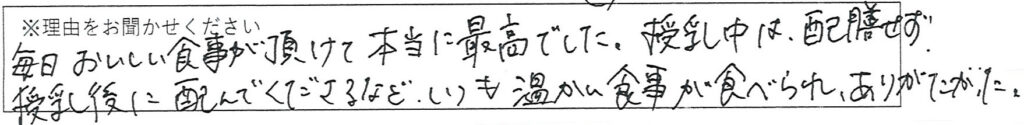 ※理由をお聞かせください
毎日おいしい食事が頂けて本当に最高でした。授乳中は、配膳せず、
授乳後に配んでくださるなど、いつも温かい食事が食べられ、ありがたかった。